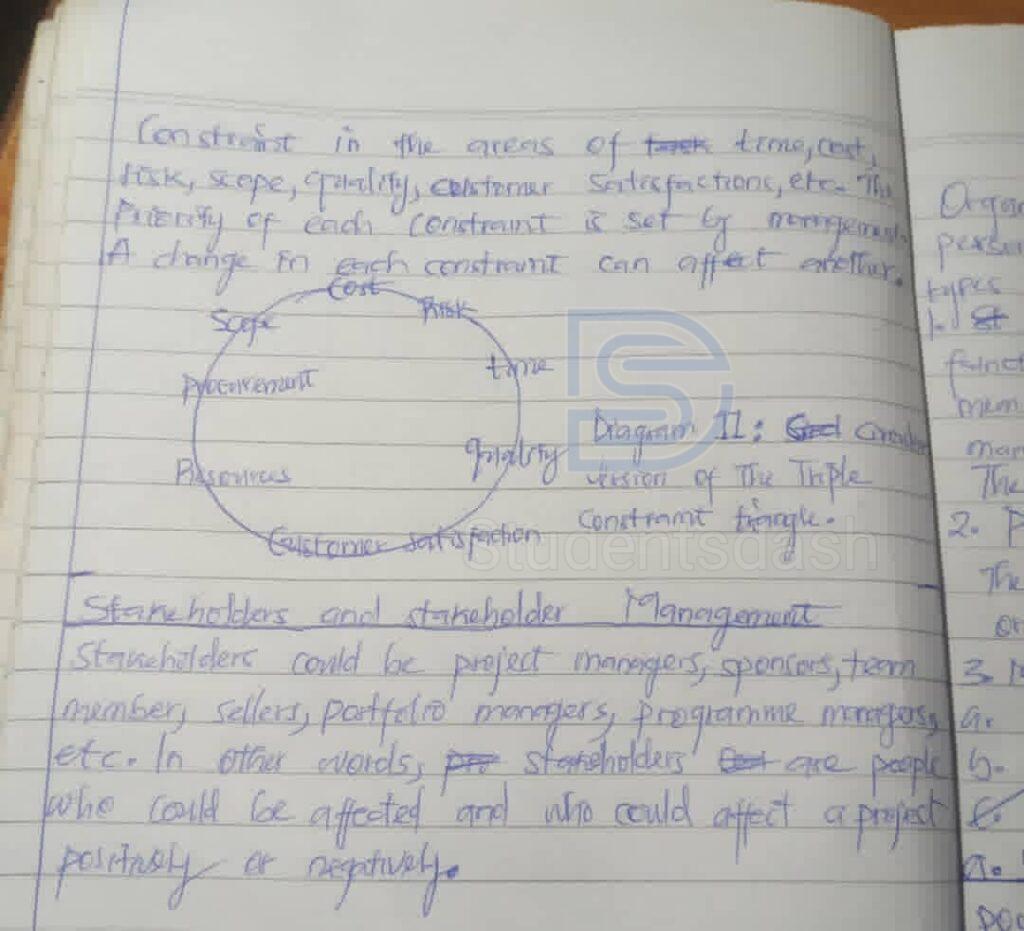 Constraint in the areas of time, cost,
risk, scope, quality, customer satisfactions, etc. The
Priority of each constraint is set by management.
A change in each constraint can affect another.
Cost
Scope
Risk
Procurement
time
Resources
quality
Customer satisfaction
Diagram II: Circular
version of The Triple
Constraint triangle.
Studentsdash
Stakeholders and stakeholder Management
Stakeholders could be project managers, sponsors, team
member, sellers, portfolio managers, programme managers,
etc. In other words, stakeholders are people
who could be affected and who could affect a project
positively or negatively.
types
1.
The
2. P
The
or
3.
a.
b.
c.
a.